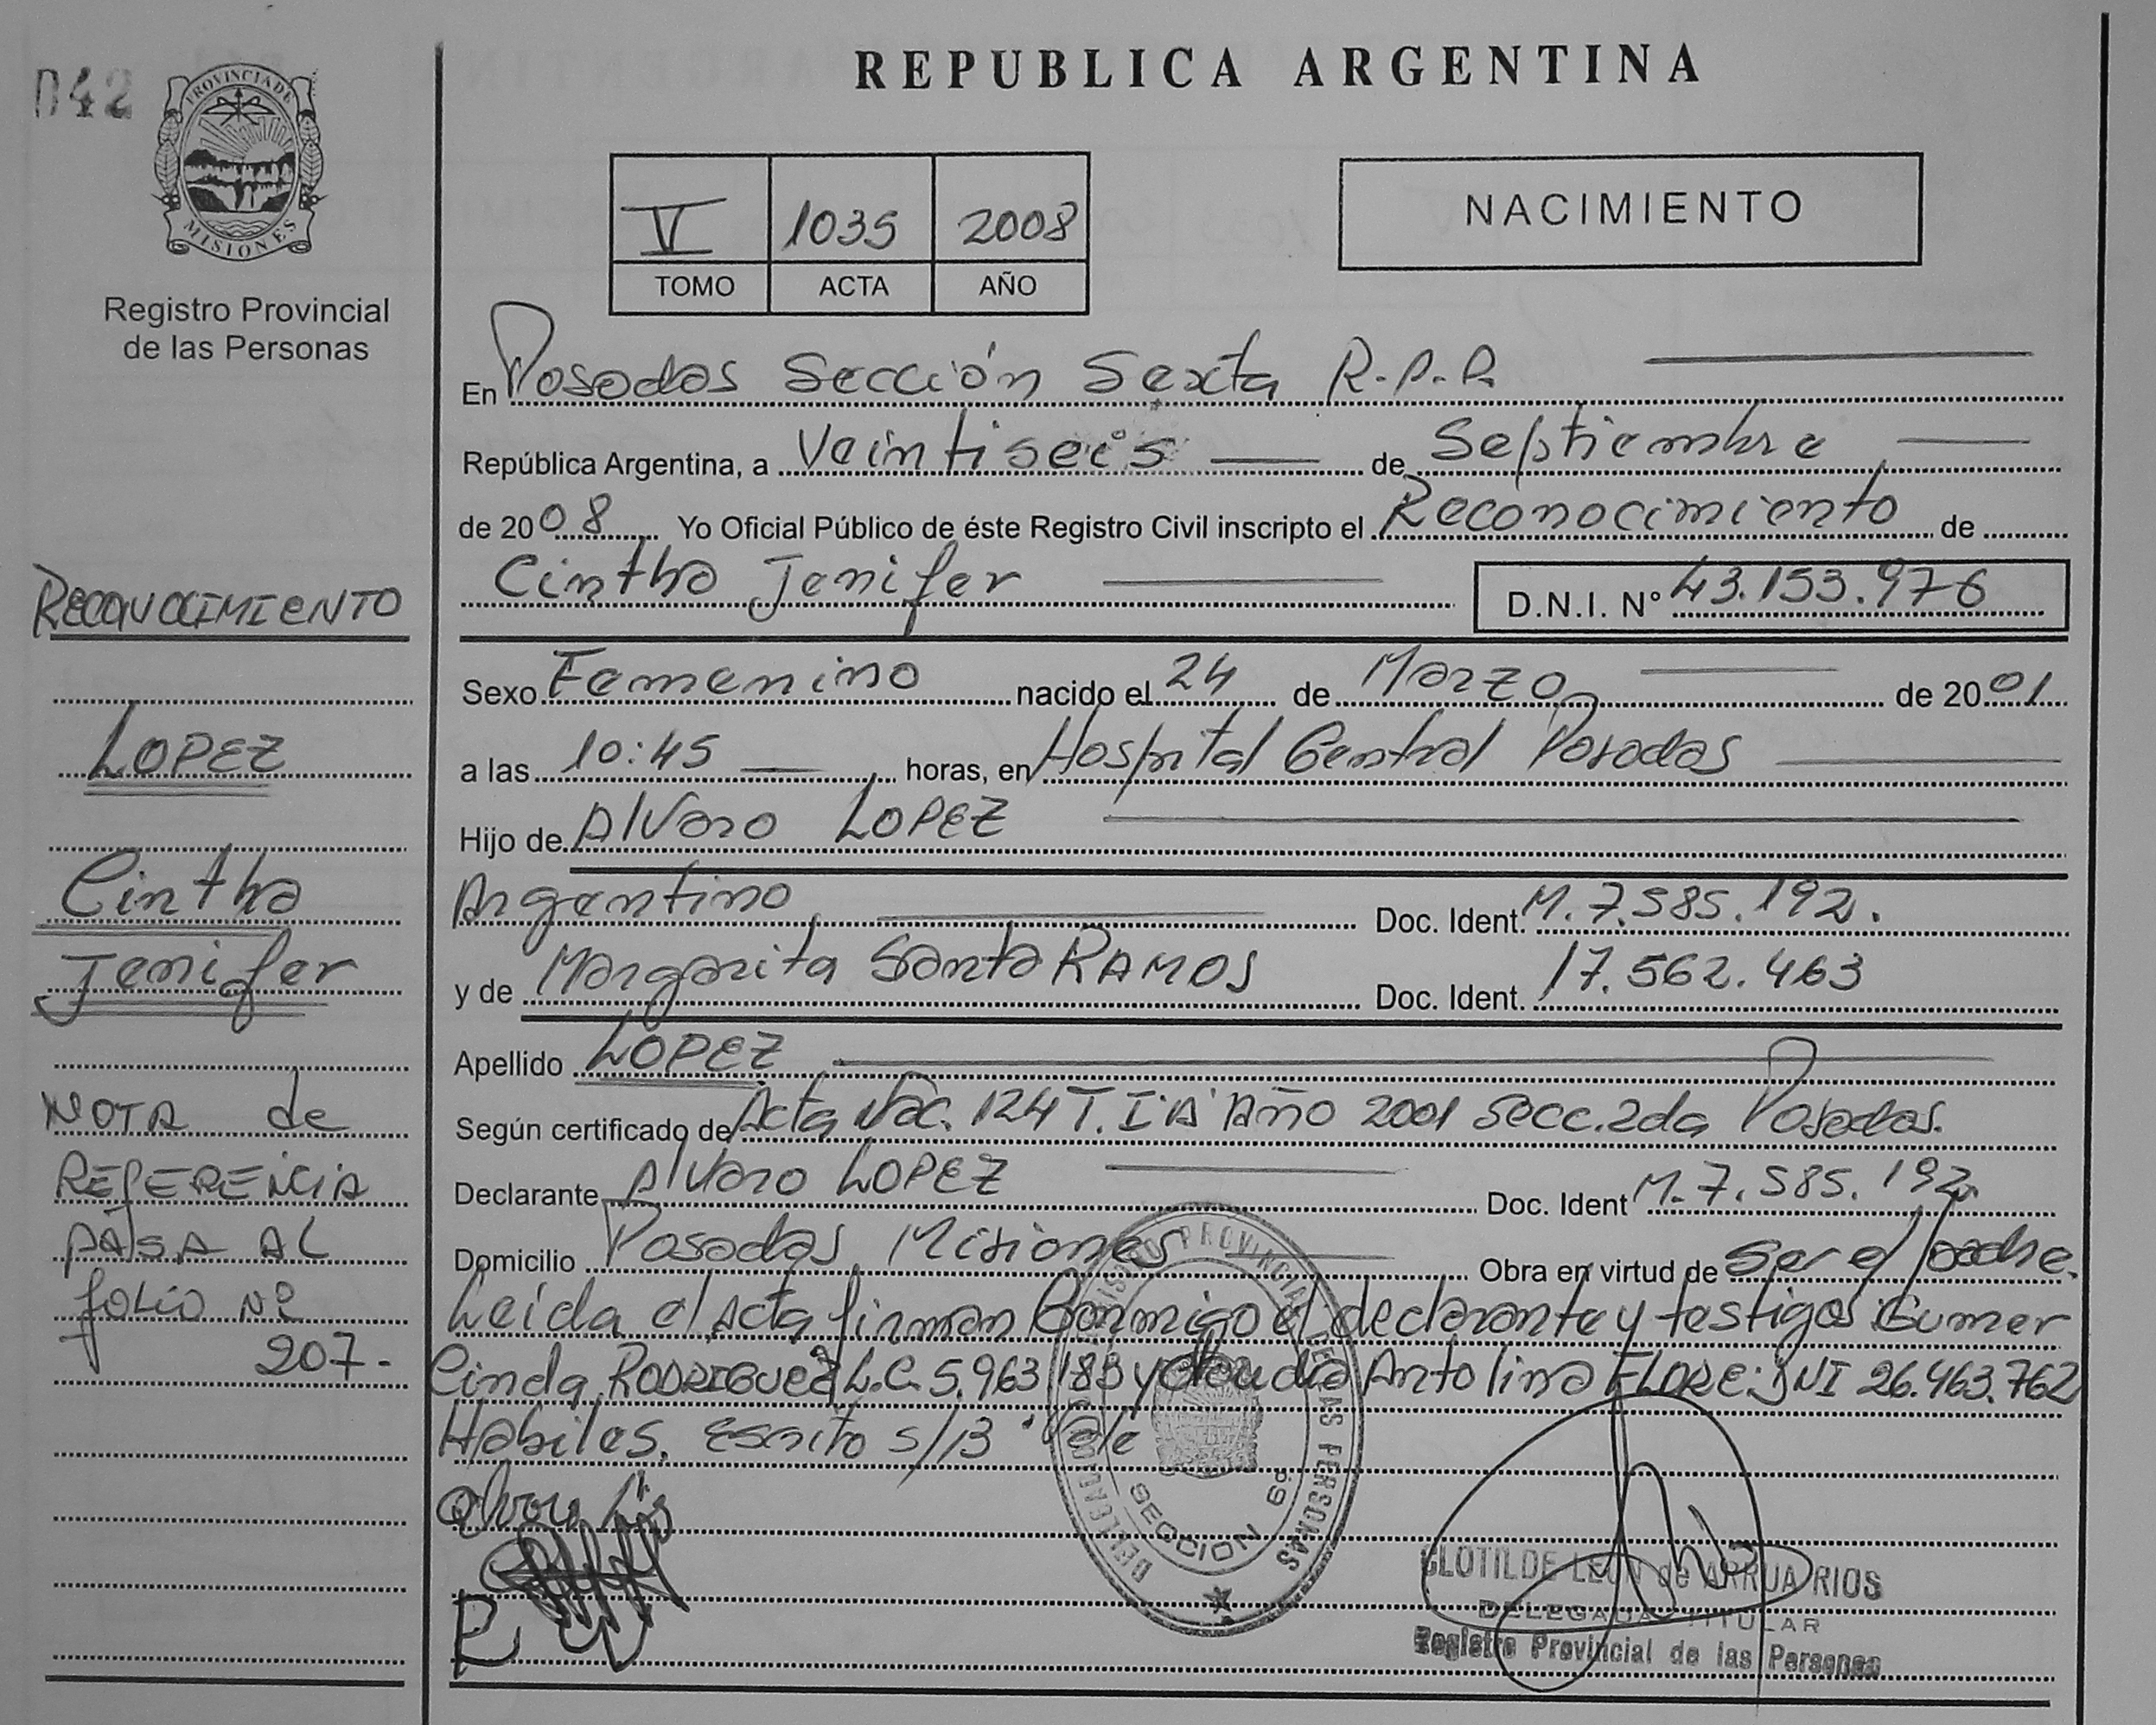 042
PROVINCIA DE
MISIONES
Registro Provincial
de las Personas
REPUBLICA ARGENTINA
V 1035 2008
TOMO ACTA AÑO
NACIMIENTO
En Posadas Sección Sexta R.P.P.
República Argentina, a Veintiseis de Septiembre
de 2008 Yo Oficial Público de éste Registro Civil inscripto el Reconocimiento de
Cintha Jenifer D.N.I. Nº 43.153.976
Sexo Femenino nacido el 24 de Marzo de 2001
a las 10:45 horas, en Hospital Central Posadas
Hijo de Alvaro LOPEZ
Argentino Doc. Ident. M.7.585.192.
y de Margarita Santa RAMOS Doc. Ident. 17.562.463
Apellido LOPEZ
Según certificado de Acta Nac. 124 T. I "A" Año 2001 Secc. 2da Posadas.
Declarante Alvaro LOPEZ Doc. Ident M.7.585.192
Domicilio Posadas Misiones Obra en virtud de Ser el padre.
Leida el Acta firman Conmigo el declarante y testigos Gumer
Cinda RODRIGUEZ L.C. 5.963.183 y Claudia Antolina FLORE: DNI 26.463.762
Habiles. Escrito s/B "Vale
RECONOCIMIENTO
LOPEZ
Cintha
Jenifer
NOTA de
REFERENCIA
PASA AL
folio Nº
207.-
REGISTRO PROVINCIAL DE LAS PERSONAS
SECCION 6ª
CLOTILDE LEON de ARRUA RIOS
DELEGADA TITULAR
Registro Provincial de las Personas